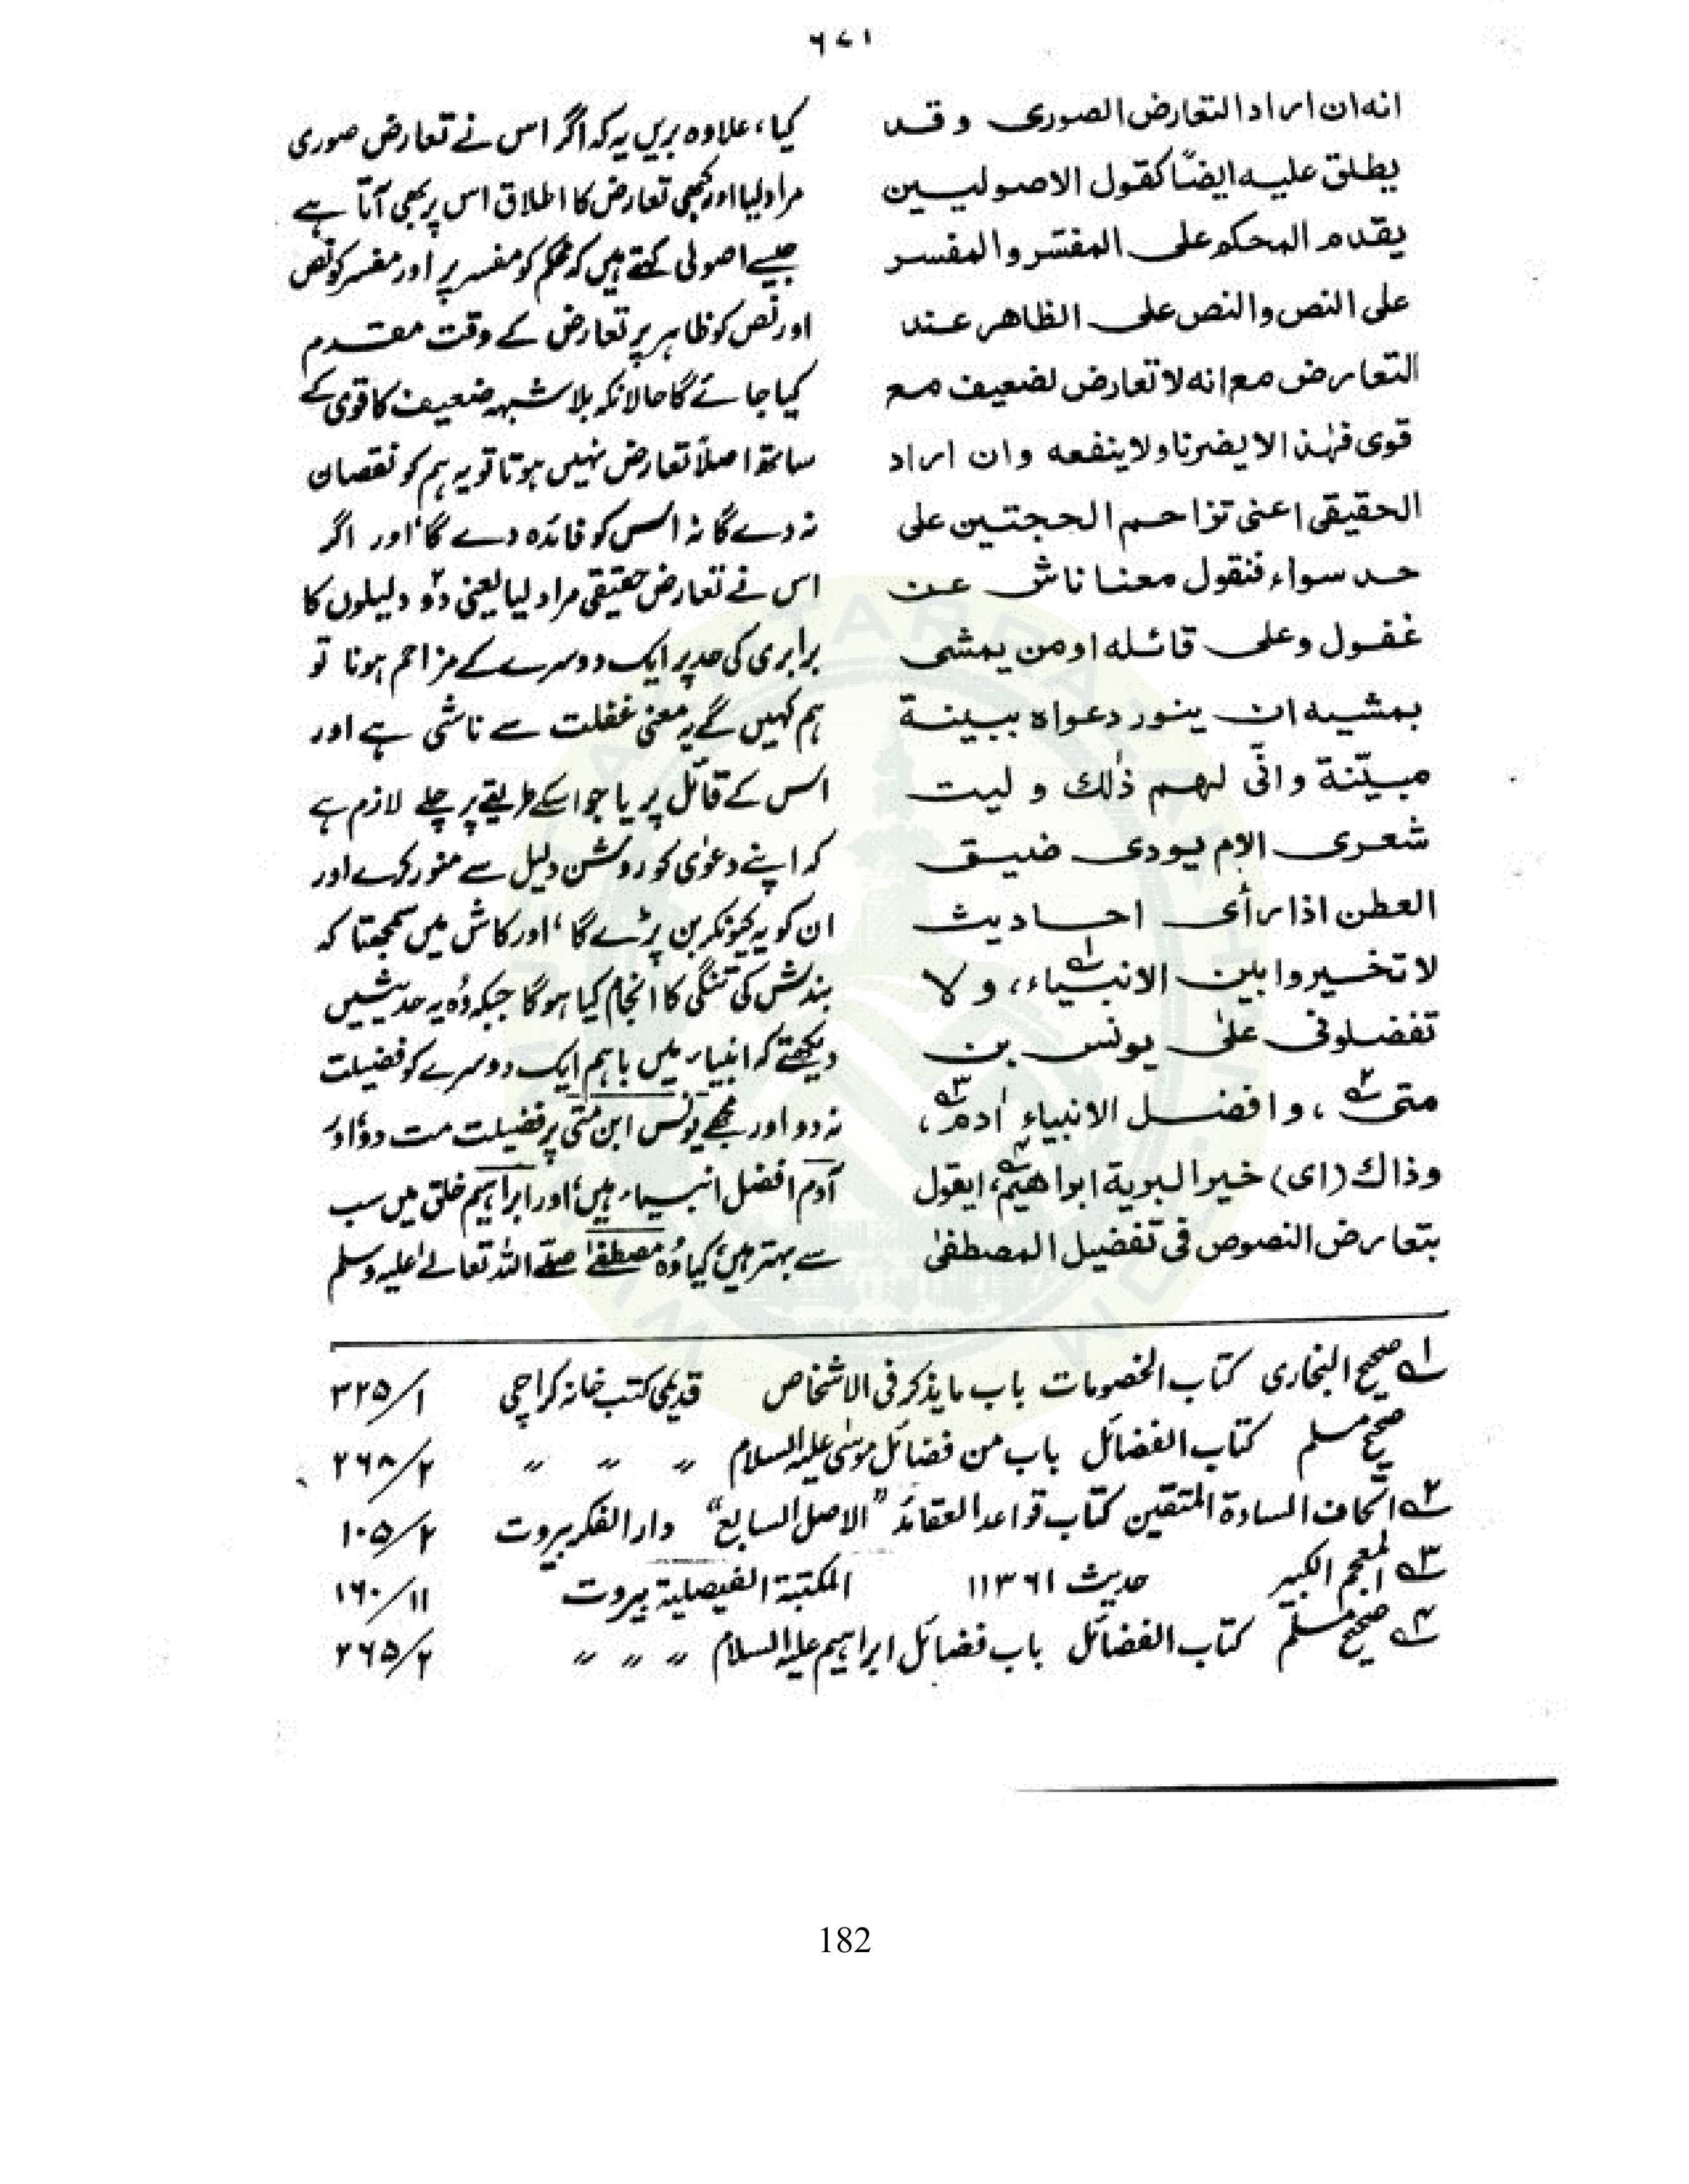 ٦٧١
انه ان اراد التعارض الصوری وقد
یطلق علیه ایضًا کقول الاصولیین
یقدم المحکم علی المفسّر والمفسر
علی النص والنص علی الظاهر عند
التعارض مع انه لا تعارض لضعیف مع
قوی فهٰذا لا یضرنا ولا ینفعه وان اراد
الحقیقی اعنی تزاحم الحجتین علی
حد سواء فنقول معنا ناش عن
غفول وعلی قائله او من یمشی
بمشیه ان ینور دعواه ببینة
مبیّنة وانّی لهم ذٰلك و لیت
شعری الام یودی ضیق
العطن اذا رأی احادیث
لا تخیروا بین الانبیاء ١؎، و لا
تفضلونی علیٰ یونس بن
متی ٢؎، وافضل الانبیاء اٰدم ٣؎،
وذاك (ای) خیر البریة ابراهیم ٤؎، ایقول
بتعارض النصوص فی تفضیل المصطفیٰ
کیا، علاوہ بریں یہ کہ اگر اس نے تعارض صوری
مراد لیا اور کبھی تعارض کا اطلاق اس پر بھی آتا ہے
جیسے اصولی کہتے ہیں کہ محکم کو مفسر پر اور مفسر کو نص
اور نص کو ظاہر پر تعارض کے وقت مقدم
کیا جائے گا حالانکہ بلاشبہہ ضعیف کا قوی کے
ساتھ اصلاً تعارض نہیں ہوتا تو یہ ہم کو نقصان
نہ دے گا نہ اس کو فائدہ دے گا، اور اگر
اس نے تعارض حقیقی مراد لیا یعنی دو۲ دلیلوں کا
برابری کی حد پر ایک دوسرے کے مزاحم ہونا تو
ہم کہیں گے یہ معنی غفلت سے ناشی ہے اور
اس کے قائل پر یا جو اسکے طریقے پر چلے لازم ہے
کہ اپنے دعوٰی کو روشن دلیل سے منور کرے اور
ان کو یہ کیونکر بن پڑے گا، اور کاش میں سمجھتا کہ
بندش کی تنگی کا انجام کیا ہوگا جبکہ وُہ یہ حدیثیں
دیکھتے کہ انبیاء میں باہم ایک دوسرے کو فضیلت
نہ دو اور مجھے یونس ابن متّٰی پر فضیلت مت دو، اور
آدم افضل انبیاء ہیں، اور ابراہیم خلق میں سب
سے بہتر ہیں، کیا وُہ مصطفےٰ صلے اللہ تعالےٰ علیہ وسلم
١؎ صحیح البخاری کتاب الخصومات باب مایذکر فی الاشخاص قدیمی کتب خانہ کراچی ١/٣٢٥
صحیح مسلم کتاب الفضائل باب من فضائل موسٰی علیہ السلام ״ ״ ״ ٢/٢٦٨
٢؎ اتحاف السادۃ المتقین کتاب قواعد العقائد "الاصل السابع" دار الفکر بیروت ٢/١٠٥
٣؎ المعجم الکبیر حدیث ١١٣٦١ المکتبۃ الفیصلیۃ بیروت ١١/١٦٠
٤؎ صحیح مسلم کتاب الفضائل باب فضائل ابراہیم علیہ السلام ״ ״ ״ ٢/٢٦٥
182